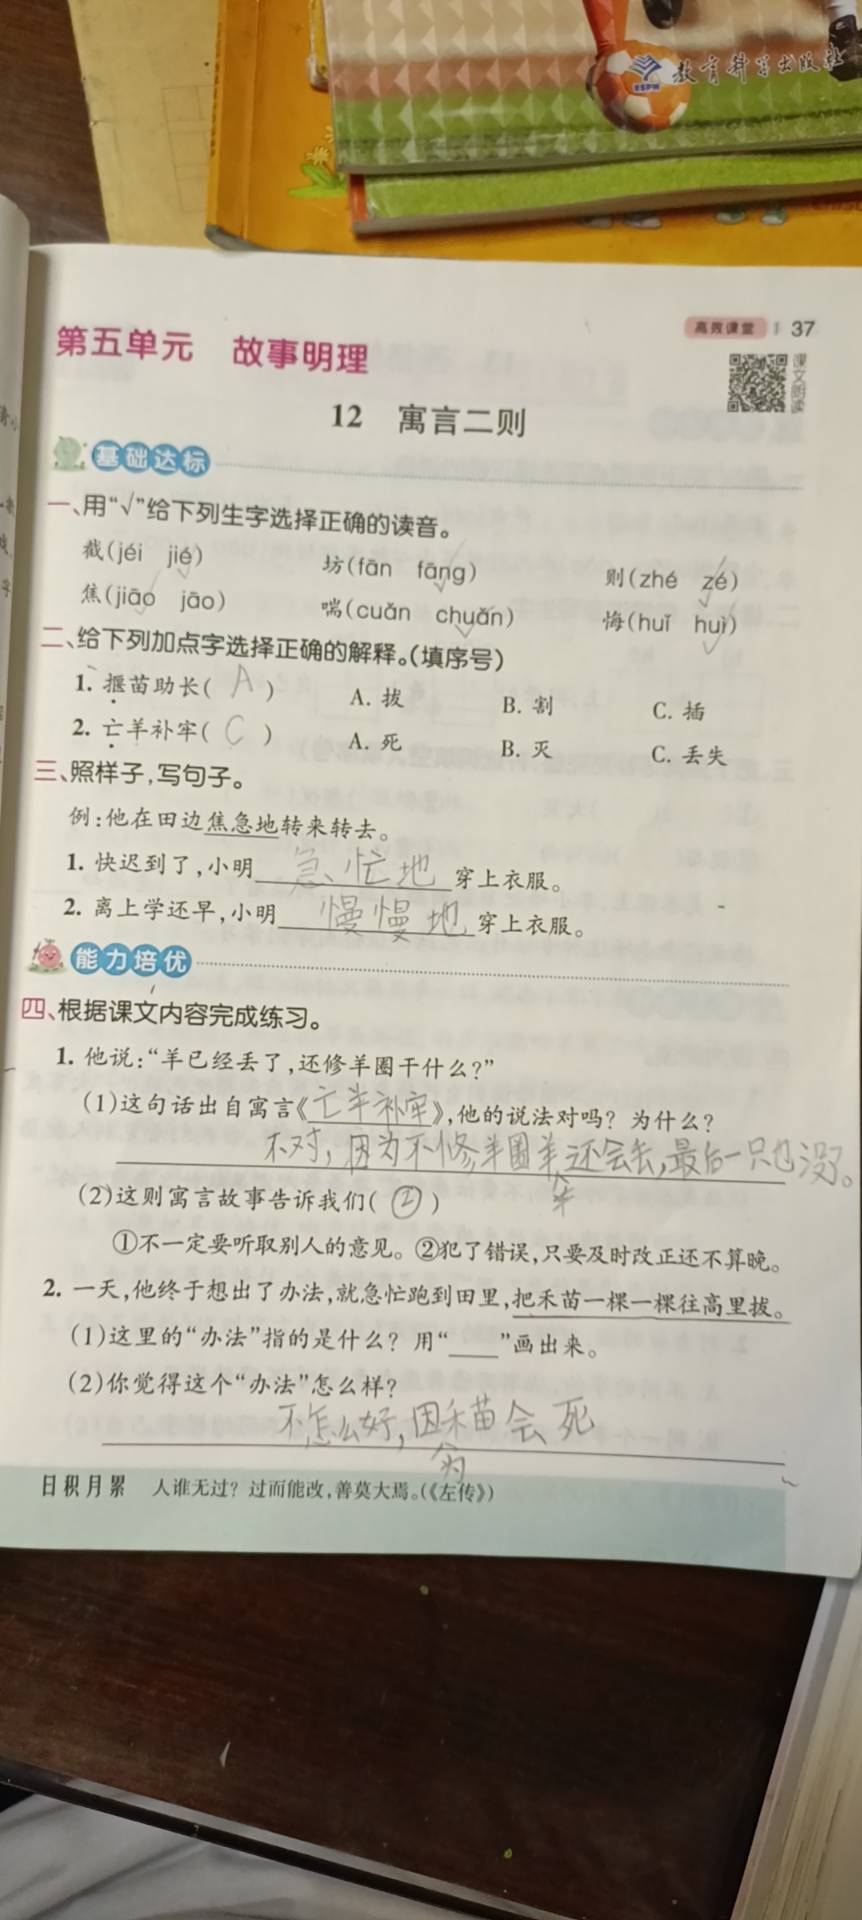 教育科学出版社
ESPH
高效课堂 37
第五单元 故事明理
课文朗读
12 寓言二则
基础达标
一、用“√”给下列生字选择正确的读音。
截(jéi jié) 坊(fān fāng) 则(zhé zé)
焦(jiāo jāo) 喘(cuǎn chuǎn) 悔(huǐ huì)
二、给下列加点字选择正确的解释。(填序号)
1. 揠苗助长( A ) A. 拔 B. 割 C. 插
2. 亡羊补牢( C ) A. 死 B. 灭 C. 丢失
三、照样子,写句子。
例:他在田边焦急地转来转去。
1. 快迟到了,小明急忙地穿上衣服。
2. 离上学还早,小明慢慢地穿上衣服。
能力培优
四、根据课文内容完成练习。
1. 他说:“羊已经丢了,还修羊圈干什么?”
(1)这句话出自寓言《亡羊补牢》,他的说法对吗? 为什么?
不对,因为不修羊圈羊还会丢,最后一只也没了。
(2)这则寓言故事告诉我们( ② )
①不一定要听取别人的意见。②犯了错误,只要及时改正还不算晚。
2. 一天,他终于想出了办法,就急忙跑到田里,把禾苗一棵一棵往高里拔。
(1)这里的“办法”指的是什么? 用“____”画出来。
(2)你觉得这个“办法”怎么样?
不怎么好,因禾苗会死
为
日积月累 人谁无过? 过而能改,善莫大焉。(《左传》)